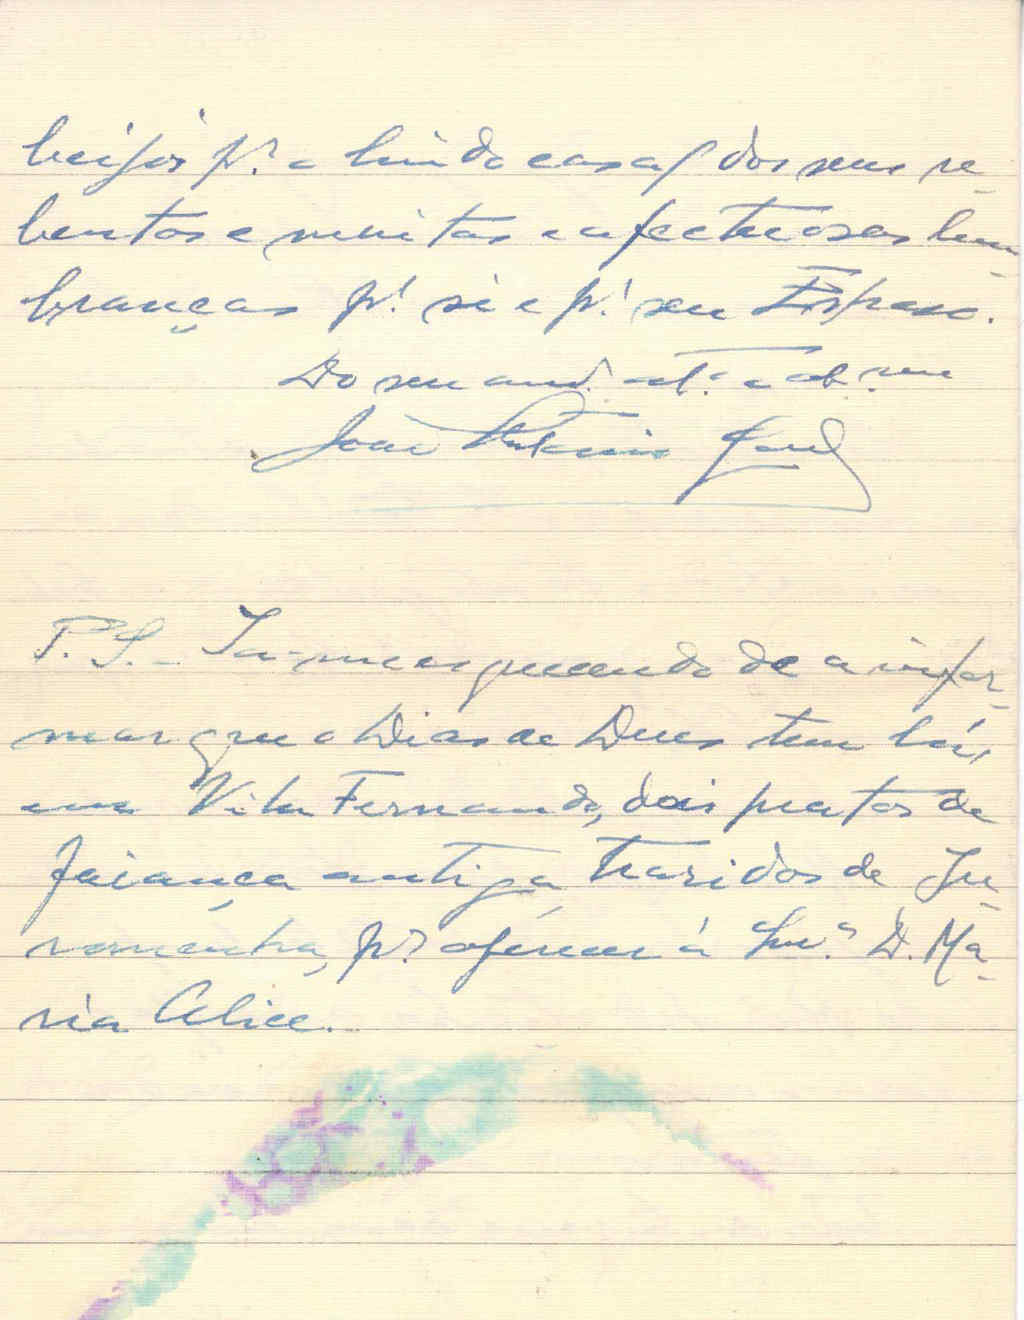 beijos p.ª o lindo casal dos seus re-
bentos e muitas e afectuosas lem-
branças p.ª si e p.ª seu Esposo.
Do seu am.º at.º e ob.
João António
P.S. - Ia-me esquecendo de a infor-
mar que o Dias de Deus tem lá,
em Vila Fernando, dois pratos de
faiança antiga, trazidos de Ju-
romenha, p.ª oferecer à Snr.ª D. Ma-
ria Alice.